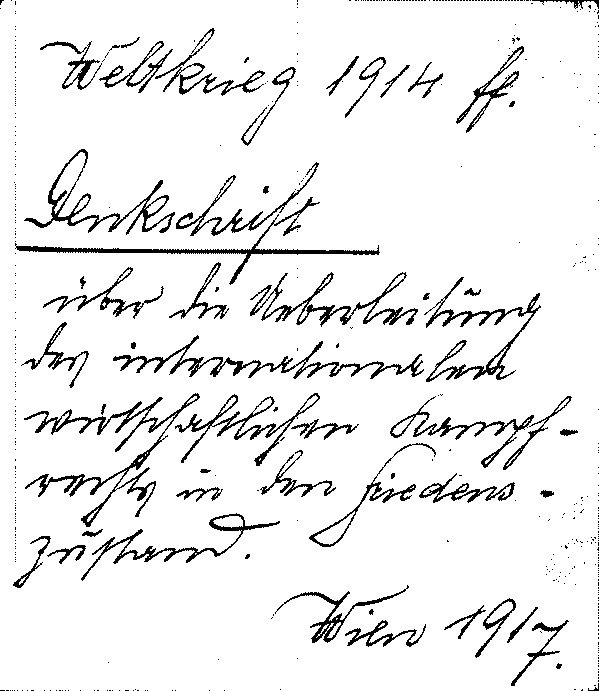 Weltkrieg 1914 ff.
Denkschrift
über die Ueberleitung
des internationalen
wirtschaftlichen Kampf-
rechts in den Friedens-
zustand.
Wien 1917.